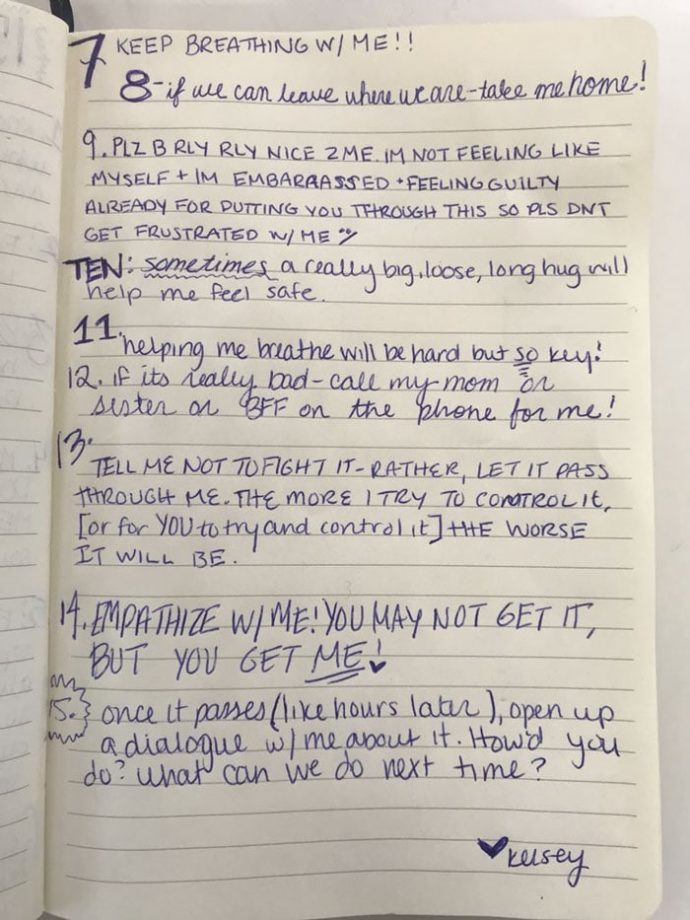 7 KEEP BREATHING W/ ME!!
8-if we can leave where we are-take me home!
9. PLZ B RLY RLY NICE 2 ME. IM NOT FEELING LIKE
MYSELF + IM EMBARRASSED + FEELING GUILTY
ALREADY FOR PUTTING YOU THROUGH THIS SO PLS DNT
GET FRUSTRATED W/ ME
TEN: sometimes a really big, loose, long hug will
help me feel safe.
11. helping me breathe will be hard but so key!
12. if its really bad-call my mom or
sister or BFF on the phone for me!
13.
TELL ME NOT TO FIGHT IT-RATHER, LET IT PASS
THROUGH ME. THE MORE I TRY TO CONTROL IT,
[or for YOU to try and control it] THE WORSE
IT WILL BE.
14. EMPATHIZE W/ ME! YOU MAY NOT GET IT,
BUT YOU GET ME!
15. once it passes (like hours later), open up
a dialogue w/ me about it. How'd you
do? what can we do next time?
♥kelsey